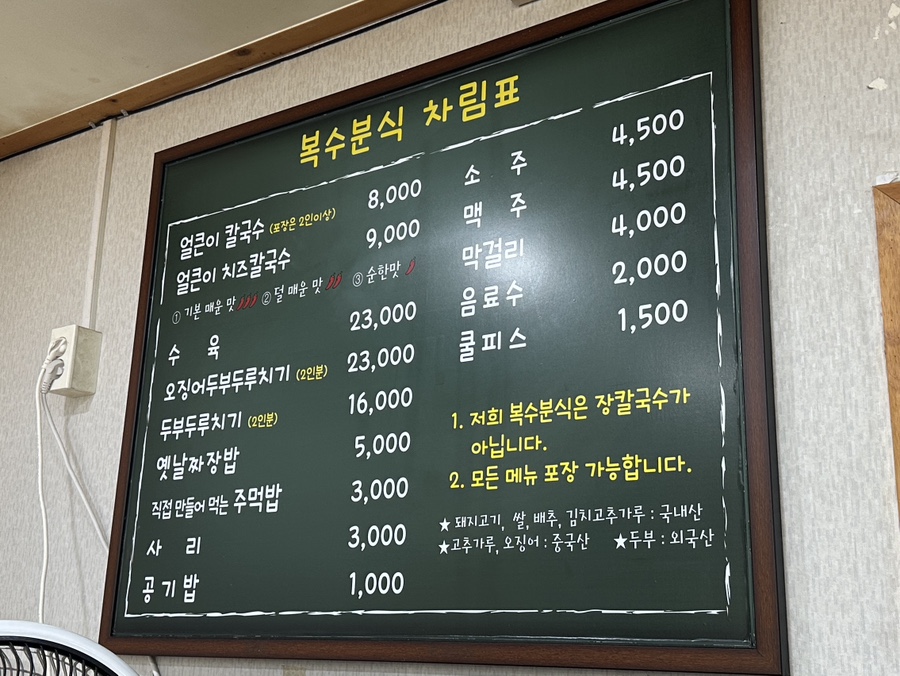 복수분식 차림표
얼큰이 칼국수 (포장은 2인이상) 8,000
얼큰이 치즈칼국수 9,000
① 기본 매운 맛 ② 덜 매운 맛 ③ 순한맛
수 육 23,000
오징어두부두루치기 (2인분) 23,000
두부두루치기 (2인분) 16,000
옛날짜장밥 5,000
직접 만들어 먹는 주먹밥 3,000
사 리 3,000
공기밥 1,000
소 주 4,500
맥 주 4,500
막걸리 4,000
음료수 2,000
쿨피스 1,500
1. 저희 복수분식은 장칼국수가
아닙니다.
2. 모든 메뉴 포장 가능합니다.
★ 돼지고기, 쌀, 배추, 김치고추가루 : 국내산
★고추가루, 오징어 : 중국산 ★두부 : 외국산